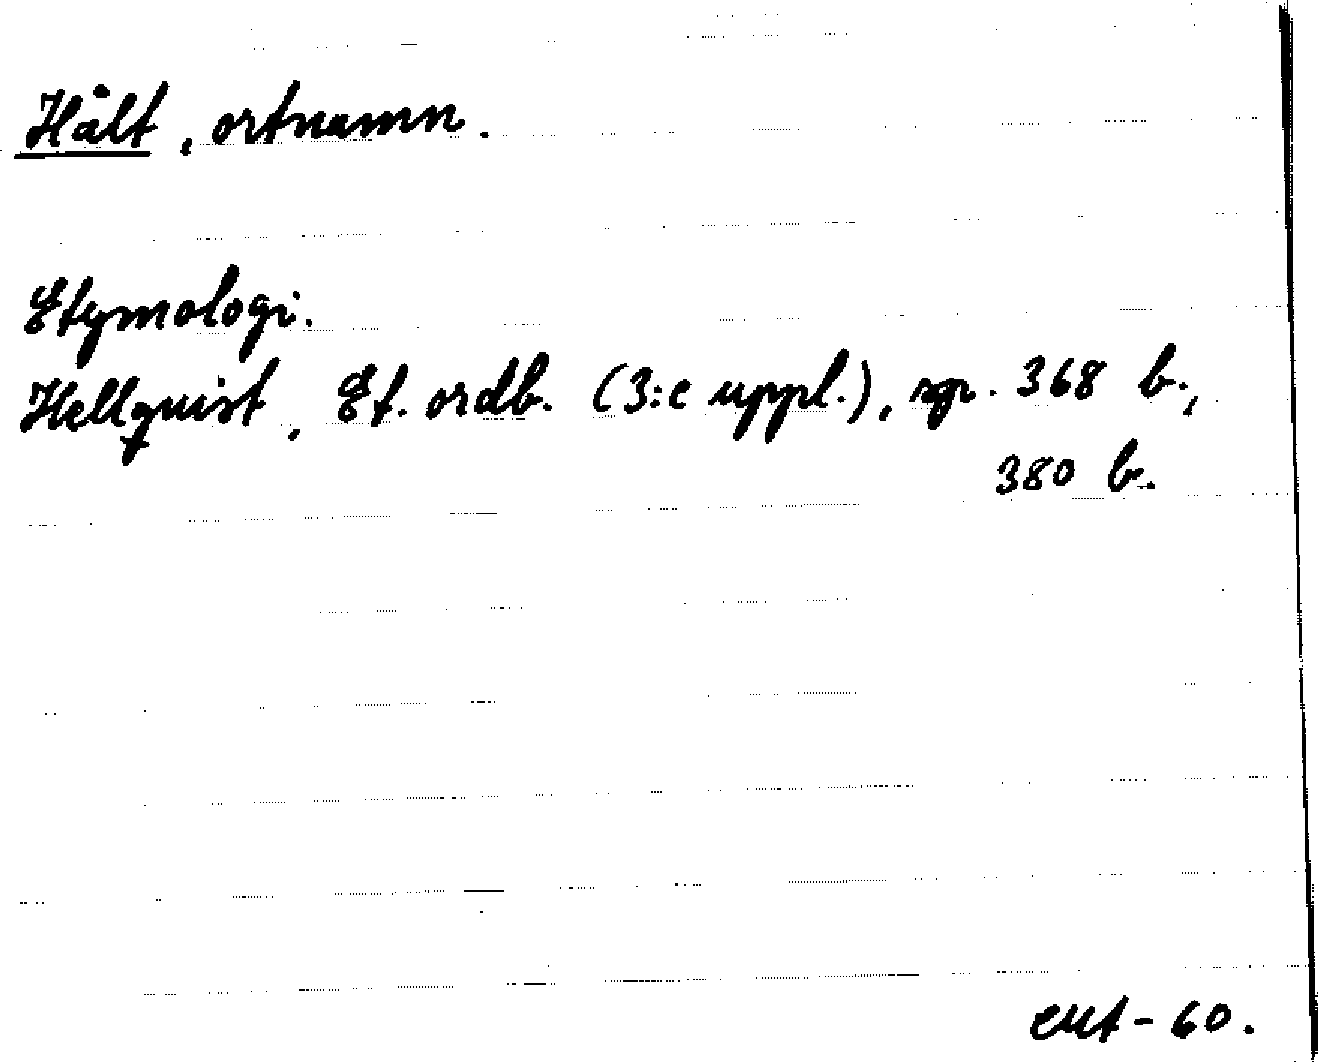 Hålt, ortnamn.
Etymologi.
Hellquist, Et. ordb. (3:e uppl.), sp. 368 b.,
380 b.
eut - 60.